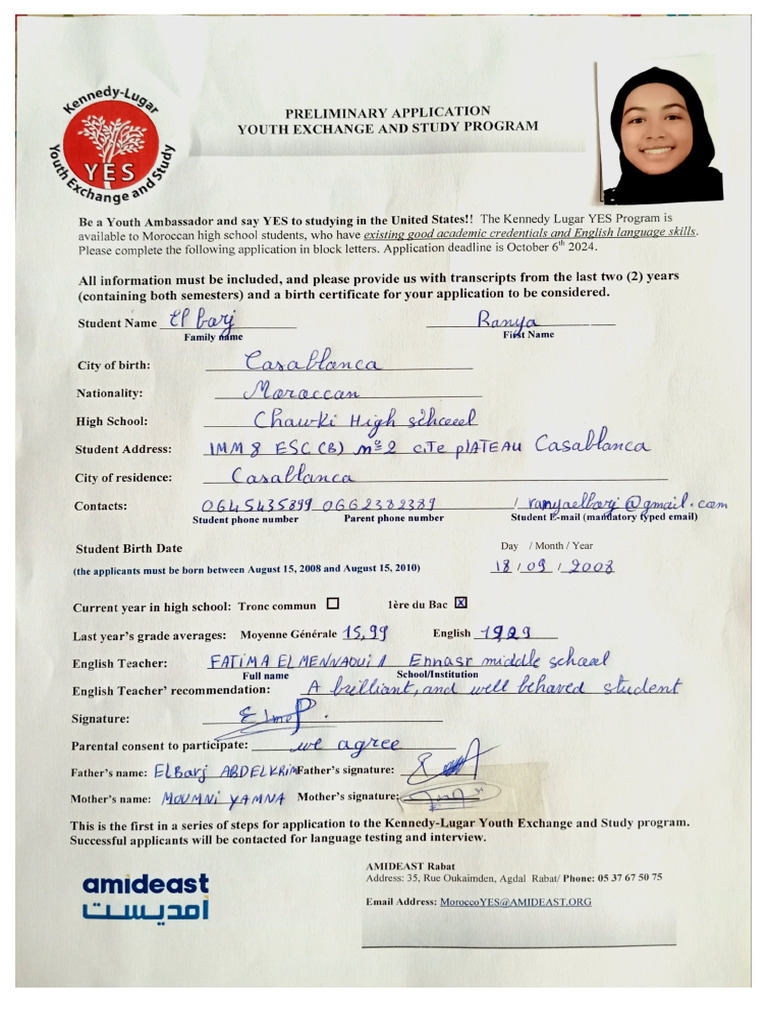 Kennedy-Lugar
YES
Youth Exchange and Study
PRELIMINARY APPLICATION
YOUTH EXCHANGE AND STUDY PROGRAM
Be a Youth Ambassador and say YES to studying in the United States!! The Kennedy Lugar YES Program is
available to Moroccan high school students, who have existing good academic credentials and English language skills.
Please complete the following application in block letters. Application deadline is October 6th 2024.
All information must be included, and please provide us with transcripts from the last two (2) years
(containing both semesters) and a birth certificate for your application to be considered.
Student Name El barj Ranya
Family name First Name
City of birth: Casablanca
Nationality: Moroccan
High School: Chawki High school
Student Address: IMM 8 ESC (B) nº2 cTe plATEAU Casablanca
City of residence: Casablanca
Contacts: 0645435899 0662382389 / ranyaelbarj@gmail.com
Student phone number Parent phone number Student E-mail (mandatory typed email)
Student Birth Date Day / Month / Year
(the applicants must be born between August 15, 2008 and August 15, 2010) 18 / 09 / 2008
Current year in high school: Tronc commun ☐ 1ère du Bac ☒
Last year's grade averages: Moyenne Générale 15,99 English
English Teacher: FATIMA EL MENNAOUI / Ennasr middle school
Full name School/Institution
English Teacher' recommendation: A brilliant, and well behaved student
Signature:
Parental consent to participate: we agree
Father's name: ELBarj ABDELKRIM Father's signature:
Mother's name: MOUMNI YAMNA Mother's signature:
This is the first in a series of steps for application to the Kennedy-Lugar Youth Exchange and Study program.
Successful applicants will be contacted for language testing and interview.
amideast
امديست
AMIDEAST Rabat
Address: 35, Rue Oukaimden, Agdal Rabat/ Phone: 05 37 67 50 75
Email Address: MoroccoYES@AMIDEAST.ORG